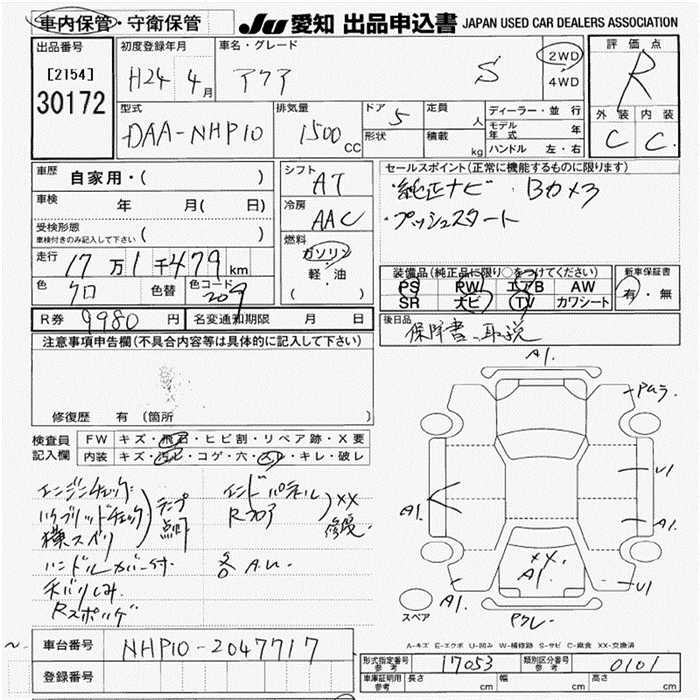 車内保管・守衛保管
JU 愛知 出品申込書 JAPAN USED CAR DEALERS ASSOCIATION
出品番号 [2154] 30172
初度登録年月 H24 4月
車名・グレード アクア S
2WD 4WD
評価点 R
外装 内装 C C
型式 DAA-NHP10
排気量 1500 CC
ドア 5
形状
定員 人
積載 kg
ディーラー・並行
モデル年式 年
ハンドル 左・右
車歴 自家用・( )
車検 年 月( 日)
受検形態
車検付きのみ記入して下さい ( )
走行 17万1千479km
色 クロ 色替 色コード 209
R券 9980円 名変通知期限 月 日
シフト AT
冷房 AAC
燃料 ガソリン
軽・油
( )
セールスポイント(正常に機能するものに限ります)
・純正ナビ ・Bカメラ
・プッシュスタート
装備品(純正品に限り○をつけてください)
PS PW エアB AW
SR ナビ TV カワシート
新車保証書 有・無
後日品 保障書、取説
注意事項申告欄(不具合内容等は具体的に記入して下さい)
修復歴 有 (箇所
検査員記入欄
FW キズ・飛石・ヒビ割・リペア跡・X要
内装 キズ・ヨゴレ・コゲ・穴・スレ・キレ・破レ
エンジンチェック
ハイブリッドチェック
横スベリ
ランプ点灯
ハンドルカバー付
天バリしみ
Rスポサゲ
エンドパネル
Rフロア
XX
修復
各 A.U.
A1.
U1
A1.
A1.
XX
A1.
U1
A1.
スペア
A-キズ E-エクボ U-凹み W-補修跡 S-サビ C-腐食 XX-交換済
車台番号 NHP10-2047717
登録番号
形式指定番号 参考 17053 類別区分番号 参考 0101
車庫証明用 参考 長さ cm 幅 cm 高さ cm